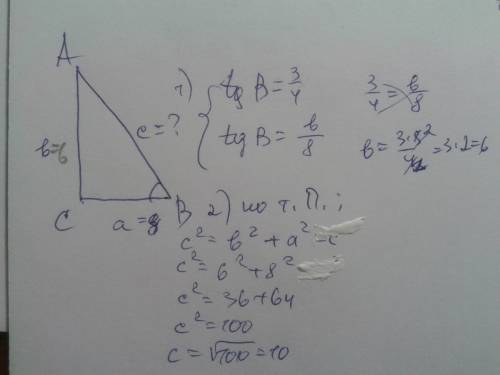 A
b=6
c=?
C
a=8
B
1) { tg B = 3/4
tg B = b/8
3/4 = b/8
b = 3·8²/4 = 3·2=6
2) по т. П.:
c² = b² + a²
c² = 6² + 8²
c² = 36+64
c² = 100
c = √100 = 10